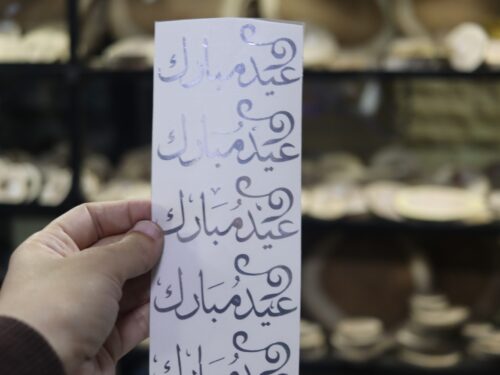 عيد مُبارك
عيد مُبارك
عيد مُبارك
عيد مُبارك
عيد مُبارك